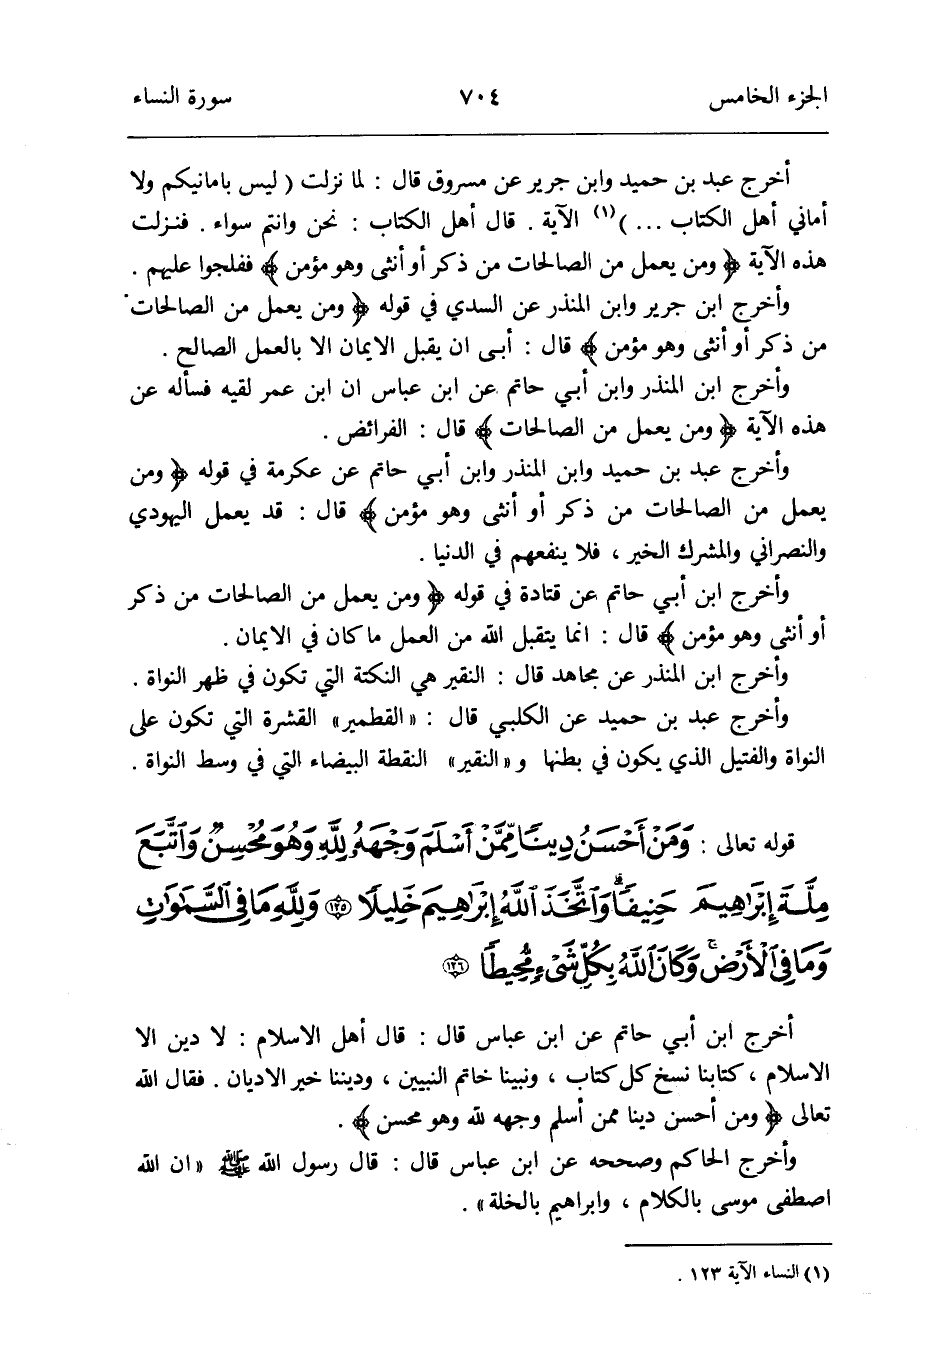 الجزء الخامس ٧٠٤ سورة النساء
أخرج عبد بن حميد وابن جرير عن مسروق قال : لما نزلت ( ليس بامانيكم ولا
أماني أهل الكتاب ... )(١) الآية . قال أهل الكتاب : نحن وانتم سواء . فنزلت
هذه الآية ﴿ ومن يعمل من الصالحات من ذكر أو أنثى وهو مؤمن ﴾ ففلجوا عليهم .
وأخرج ابن جرير وابن المنذر عن السدي في قوله ﴿ ومن يعمل من الصالحات
من ذكر أو أنثى وهو مؤمن ﴾ قال : أبى ان يقبل الايمان الا بالعمل الصالح .
وأخرج ابن المنذر وابن أبي حاتم عن ابن عباس ان ابن عمر لقيه فسأله عن
هذه الآية ﴿ ومن يعمل من الصالحات ﴾ قال : الفرائض .
وأخرج عبد بن حميد وابن المنذر وابن أبي حاتم عن عكرمة في قوله ﴿ ومن
يعمل من الصالحات من ذكر أو أنثى وهو مؤمن ﴾ قال : قد يعمل اليهودي
والنصراني والمشرك الخير ، فلا ينفعهم في الدنيا .
وأخرج ابن أبي حاتم عن قتادة في قوله ﴿ ومن يعمل من الصالحات من ذكر
أو أنثى وهو مؤمن ﴾ قال : انما يتقبل الله من العمل ما كان في الايمان .
وأخرج ابن المنذر عن مجاهد قال : النقير هي النكتة التي تكون في ظهر النواة .
وأخرج عبد بن حميد عن الكلبي قال : «القطمير» القشرة التي تكون على
النواة والفتيل الذي يكون في بطنها و«النقير» النقطة البيضاء التي في وسط النواة .
قوله تعالى : وَمَنْ أَحْسَنُ دِينًا مِّمَّنْ أَسْلَمَ وَجْهَهُۥ لِلَّهِ وَهُوَ مُحْسِنٌ وَٱتَّبَعَ
مِلَّةَ إِبْرَٰهِيمَ حَنِيفًاۗ وَٱتَّخَذَ ٱللَّهُ إِبْرَٰهِيمَ خَلِيلًا ۝١٢٥ وَلِلَّهِ مَا فِى ٱلسَّمَٰوَٰتِ
وَمَا فِى ٱلْأَرْضِۚ وَكَانَ ٱللَّهُ بِكُلِّ شَىْءٍ مُّحِيطًا ۝١٢٦
أخرج ابن أبي حاتم عن ابن عباس قال : قال أهل الاسلام : لا دين الا
الاسلام ، كتابنا نسخ كل كتاب ، ونبينا خاتم النبيين ، وديننا خير الاديان . فقال الله
تعالى ﴿ ومن أحسن دينا ممن أسلم وجهه لله وهو محسن ﴾ .
وأخرج الحاكم وصححه عن ابن عباس قال : قال رسول الله ﷺ «ان الله
اصطفى موسى بالكلام ، وابراهيم بالخلة» .
(١) النساء الآية ١٢٣ .